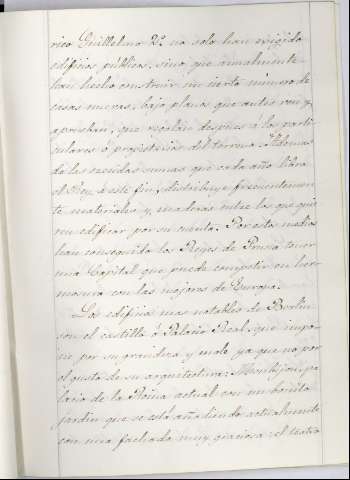 rico Guillelmo 2º no solo han erigido
edificios publicos, sino que anualmente
han hecho construir un cierto número de
casas nuevas, bajo planos que antes ven y
aprueban, que regalan despues á los parti-
culares ó propietarios del terreno. Ademas
de las crecidas sumas que cada año libra
el Rey á este fin, distribuye frecuentemen-
te materiales y maderas entre los que quie-
ren edificar por su cuenta. Por estos medios
han conseguido los Reyes de Prusia tener
una Capital que puede competir en her-
mosura con las mejores de Europa.
Los edificios mas notables de Berlin
son el castillo ó Palacio Real, que impo-
ne por su grandeza y mole ya que no por
el gusto de su arquitectura; Monbijou, pa-
lacio de la Reina actual con un bonito
jardin que se está añadiendo actualmente
con una fachada muy graciosa; el teatro